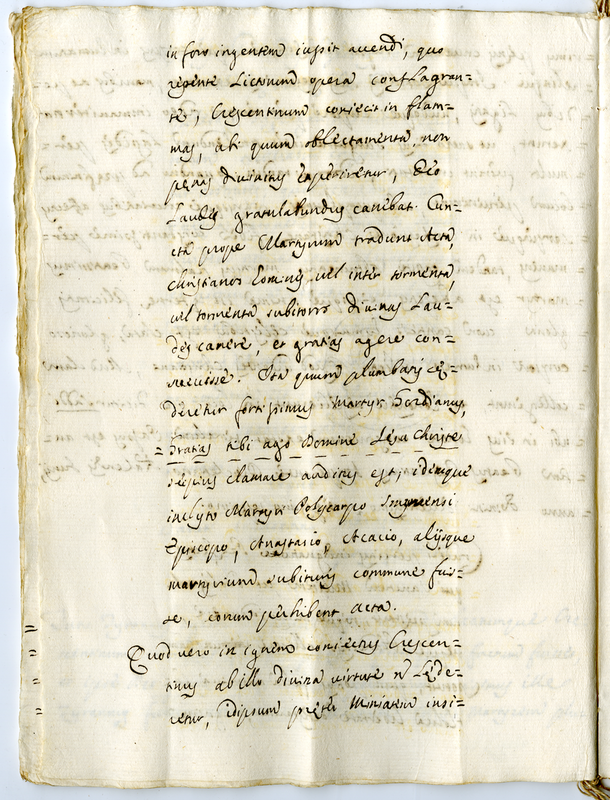 in foro ingentem iussit accendi, quo
repente Lictorum opera conflagran-
te, Crescentinum coniecit in flam-
mas, ubi quum oblectamenta, non
pęnas divinitus experiretur, Deo
Laudes gratulabundus canebat. Cun-
cta prope Martyrum tradunt Acta,
christianos homines vel inter tormenta,
vel tormenta subituros divinas Lau-
des canere, et gratias agere con-
suevisse. Ita quum plumbatis cę-
deretur fortissimus Martyr Gordianus,
= Gratias tibi ago Domine Iesu Christe
sępius clamare auditus est; idemque
inclyto Martyri Polycarpo Smyrnensi
Episcopo, Anastasio, Acacio, alijsque
martyrium subituris commune fuis-
se, eorum perhibent Acta.
Quod vero in ignem coniectus Crescen-
tinus ab illo divina virtute n Lęde-
retur, idipsum pręter Miniatum insi-